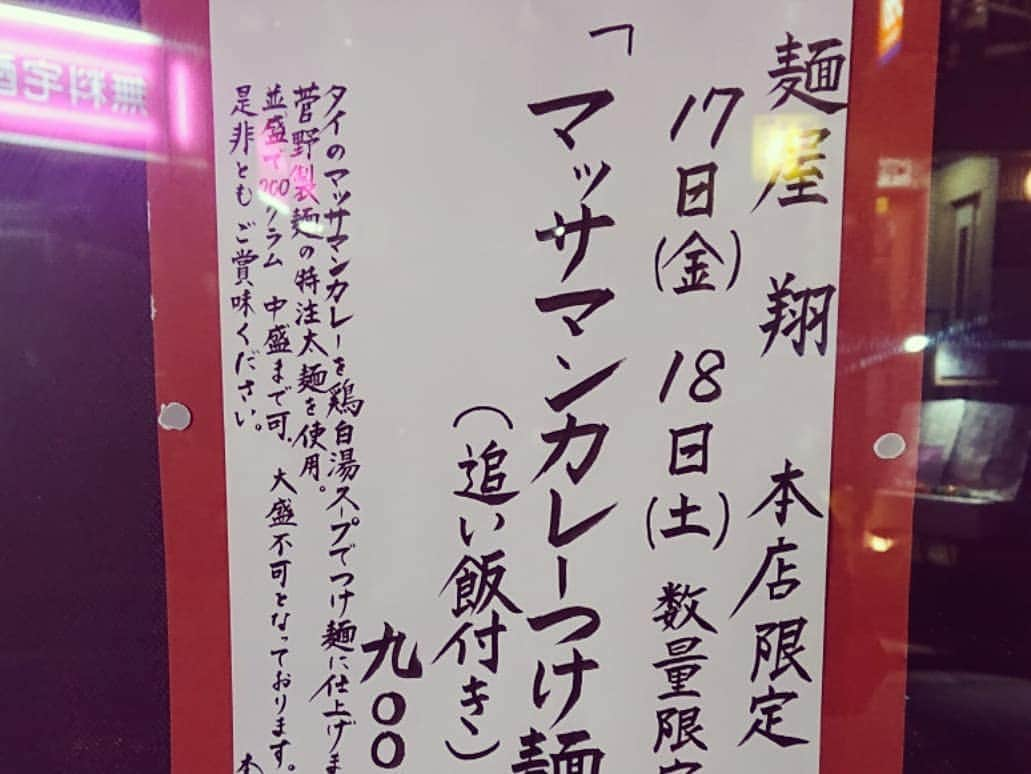 麺屋 翔 本店限定
17日(金) 18日(土) 数量限定
「マッサマンカレーつけ麺
(追い飯付き)
九〇〇
タイのマッサマンカレーを鶏白湯スープでつけ麺に仕上げま
菅野製麺の特注太麺を使用。
並盛で200グラム 中盛まで可、大盛不可となっております。
是非ともご賞味ください。
本